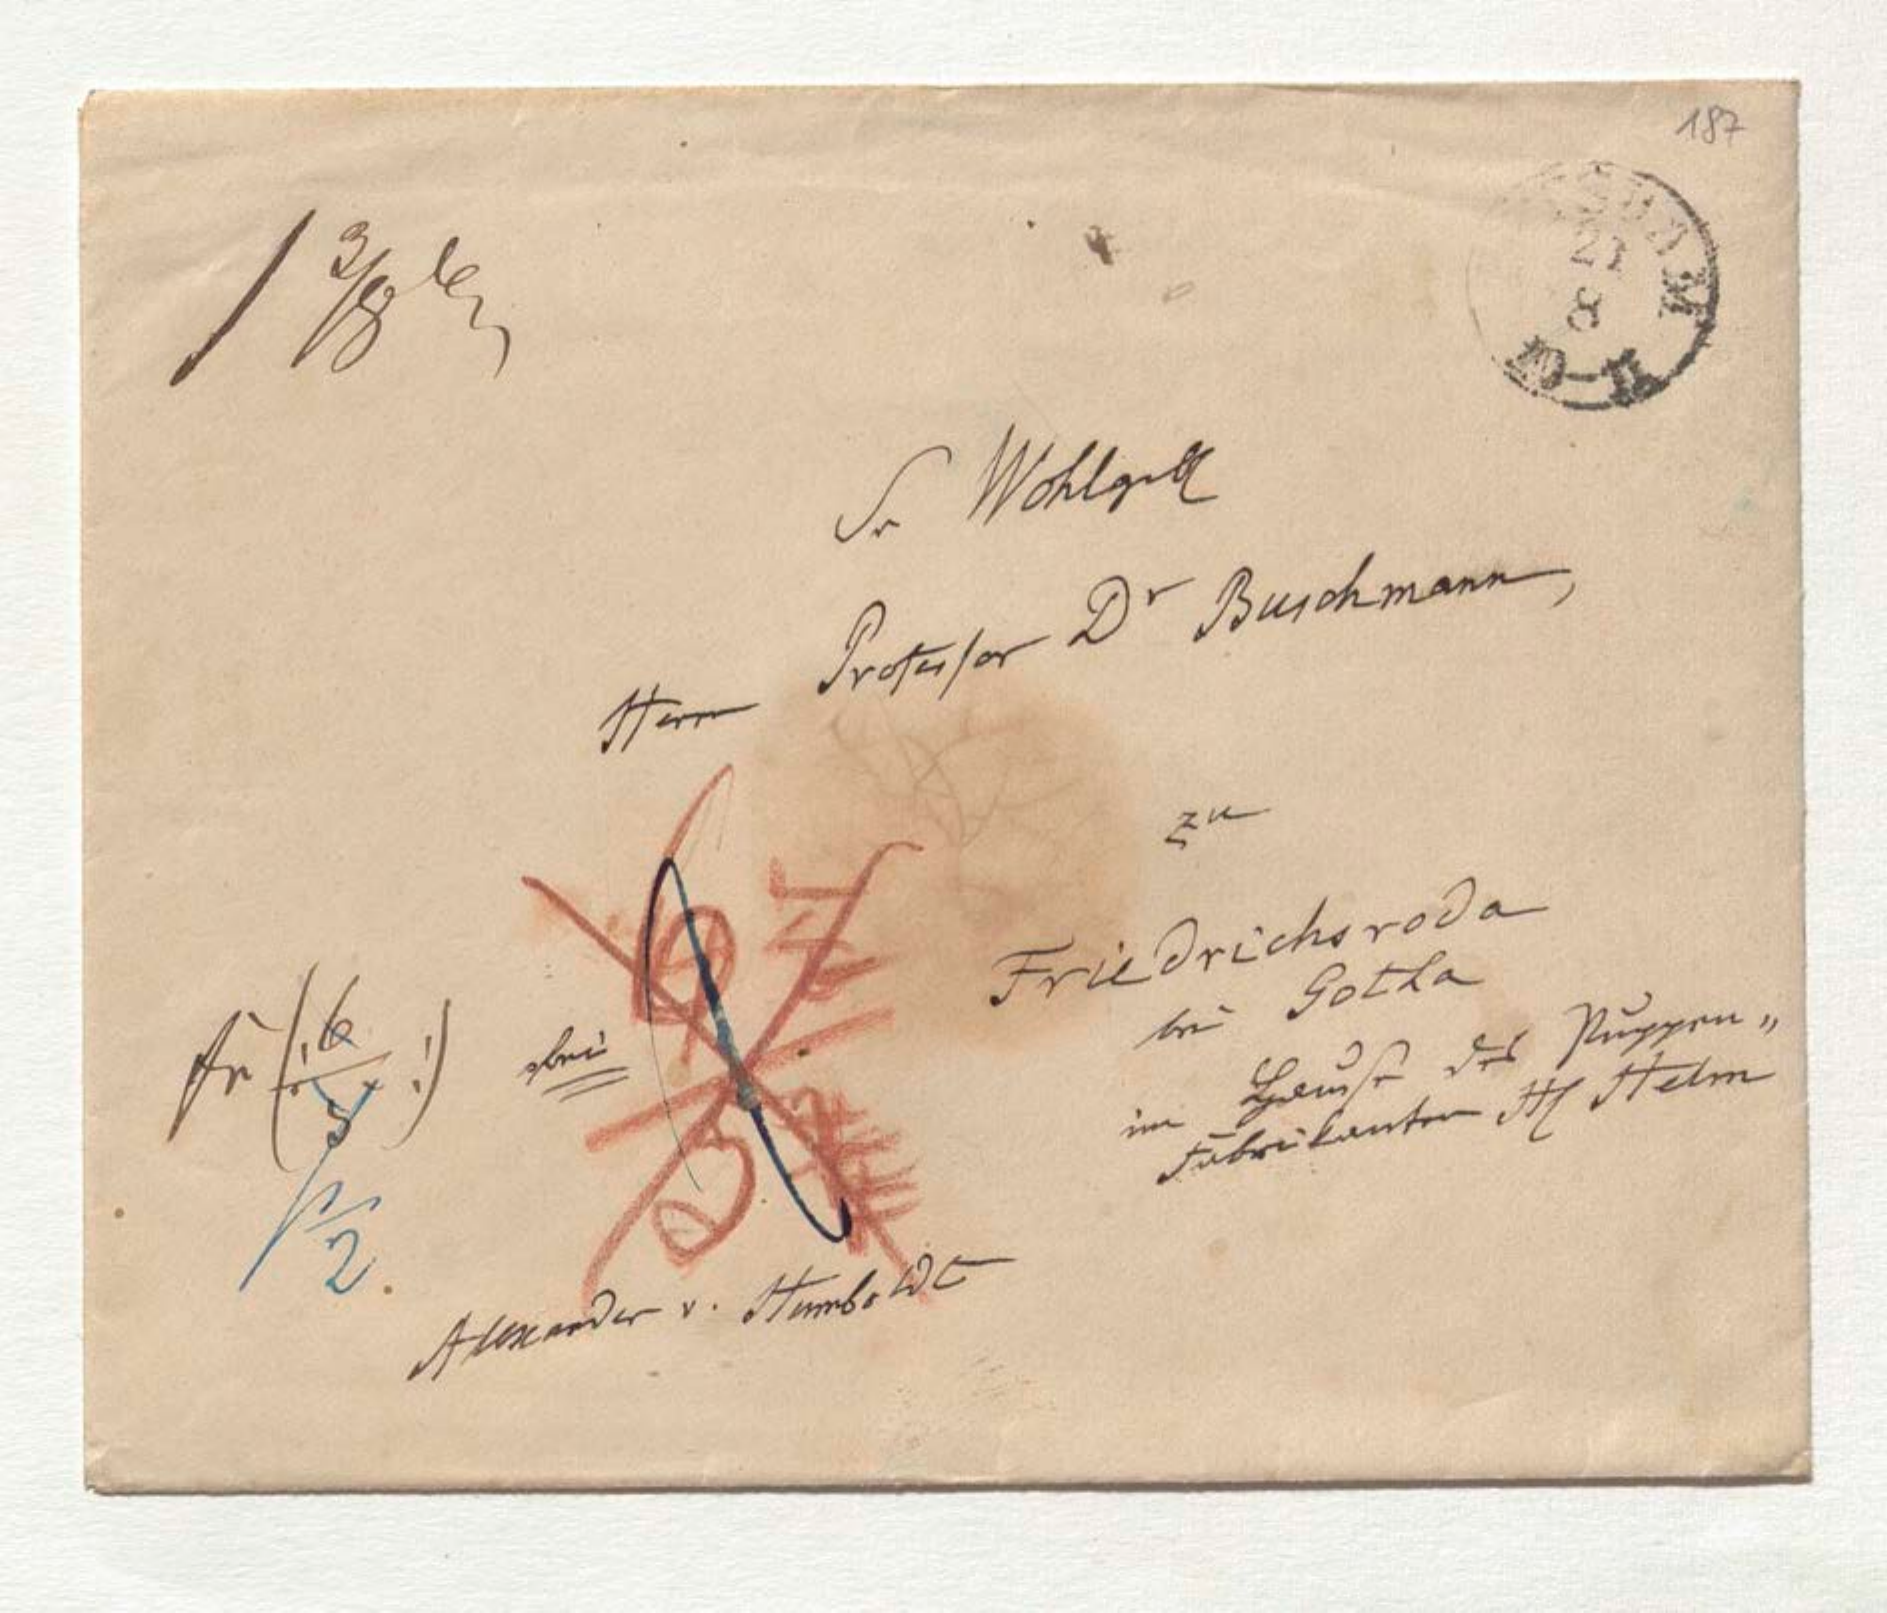 187
1 3/8
21
8
Sr Wohlgeb
Herrn Professor Dr Buschmann,
zu
Friedrichsroda
bei Gotha
im Hause des Puppen„
Fabrikanten H Helm
fr (: 6
:)
frei
1/2
Alexander v. Humboldt